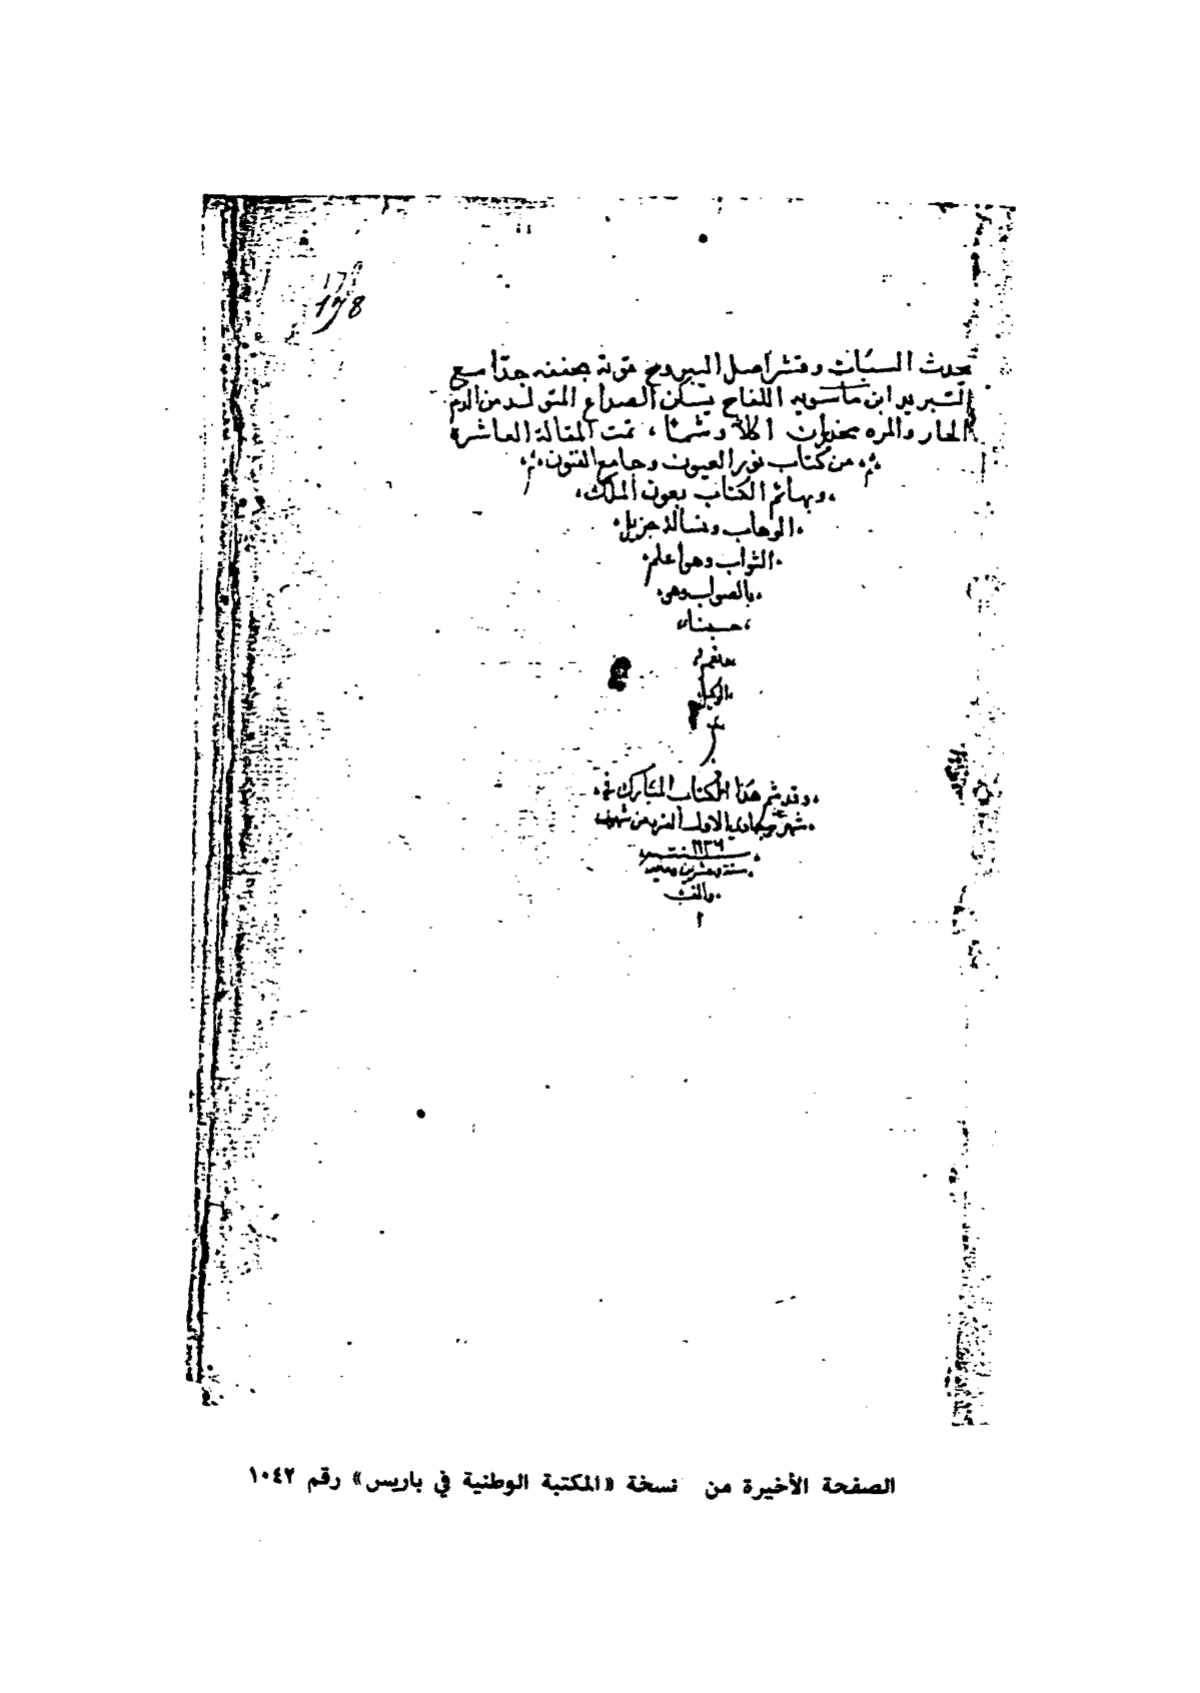 178
178
يحدث السبات وقشر اصل اليبروح قوته مجففه جدا مع
التبريد ابن ماسويه اللفاح يسكن الصداع المتولد من الدم
الحار والمره اكلا وشما، تمت المقالة العاشرة
من كتاب نور العيون وجامع الفنون
وبها تم الكتاب بعون الملك
الوهاب ونساله جزيل
الثواب وهو اعلم
بالصواب وهو
حسبنا
ونعم
الوكيل
وقد تم هذا الكتاب المبارك في
شهر جمادي الاول من شهور
سنة
ستة وعشرين
والف
الصفحة الأخيرة من نسخة «المكتبة الوطنية في باريس» رقم ١٠٤٢